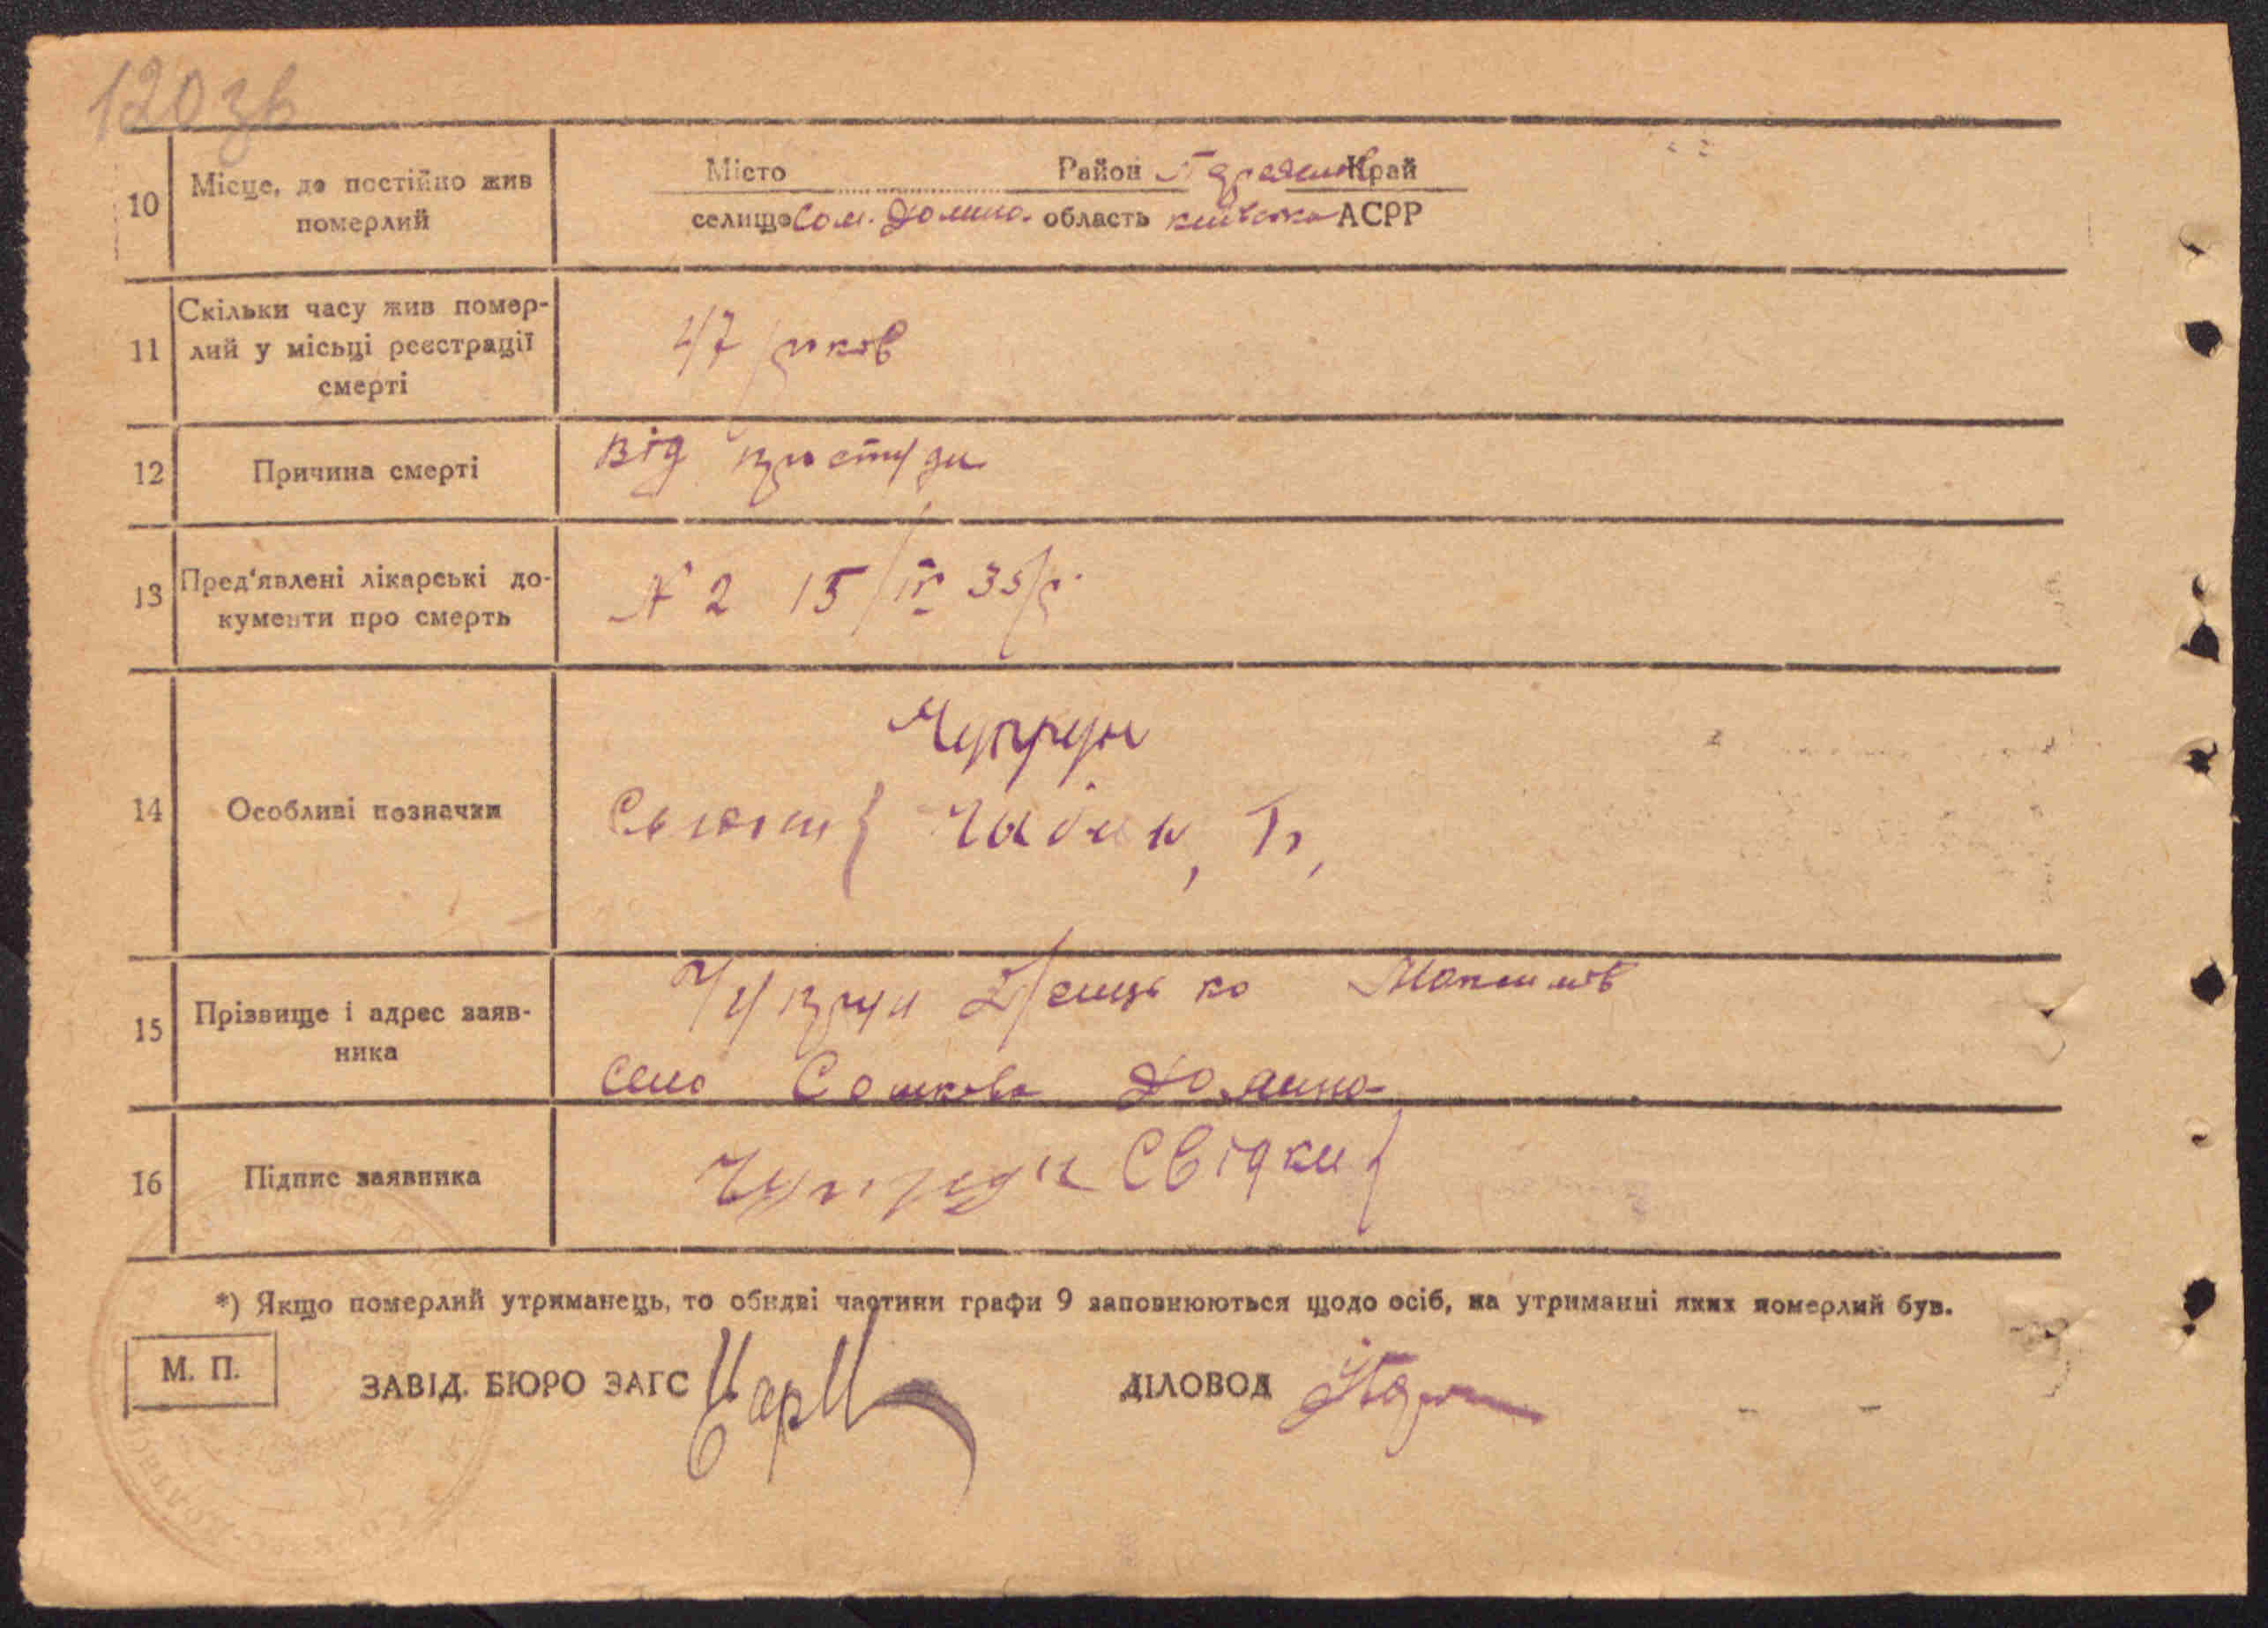 120 зв
10 Місце, де постійно жив померлий
Місто Район Край
селище Сом. Долина область київська АСРР
11 Скільки часу жив помер-
лий у місьці реєстрації
смерті
47 років
12 Причина смерті
Від простуди
13 Пред'явлені лікарські до-
кументи про смерть
№ 2 15/IV 35 р.
14 Особливі позначки
Чупрун
15 Прізвище і адрес заяв-
ника
Чупрун
село Сошкова Долина
16 Підпис заявника
Чупрун Свідки
*) Якщо померлий утриманець, то обидві частини графи 9 заповнюються щодо осіб, на утриманні яких померлий був.
М. П.
ЗАВІД. БЮРО ЗАГС
ДІЛОВОД